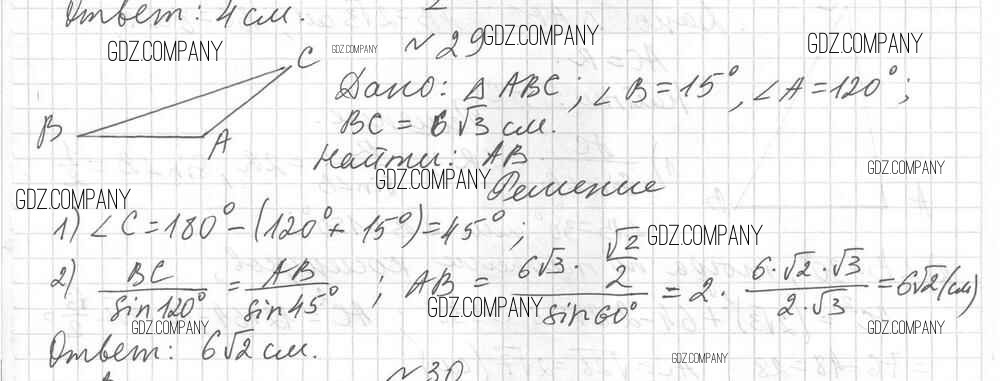 Ответ: 4 см.
GDZ.COMPANY GDZ.COMPANY № 29 GDZ.COMPANY GDZ.COMPANY
B A C
Дано: △ ABC; ∠B = 15°, ∠A = 120°;
BC = 6√3 см.
Найти: AB
GDZ.COMPANY GDZ.COMPANY
Решение
GDZ.COMPANY
1) ∠C = 180° − (120° + 15°) = 45°;
GDZ.COMPANY
2) BC / sin120° = AB / sin45° ; AB = (6√3 · √2/2) / sin60° = 2 · (6·√2·√3) / (2·√3) = 6√2 (см)
GDZ.COMPANY GDZ.COMPANY GDZ.COMPANY
Ответ: 6√2 см.
GDZ.COMPANY
№ 30